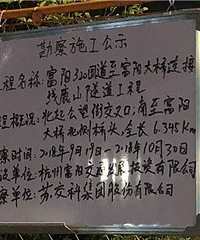 勘察施工公示
程名称:富阳320国道至富阳大桥连接
线鹿山隧道工程
程概况:北起公望街交叉口,南至富阳
大桥北侧桥头,全长6.345km
察时间:2018年9月19日-2018年10月30日
设单位:杭州富阳交通发展投资有限公司
察单位:苏交科集团股份有限公司